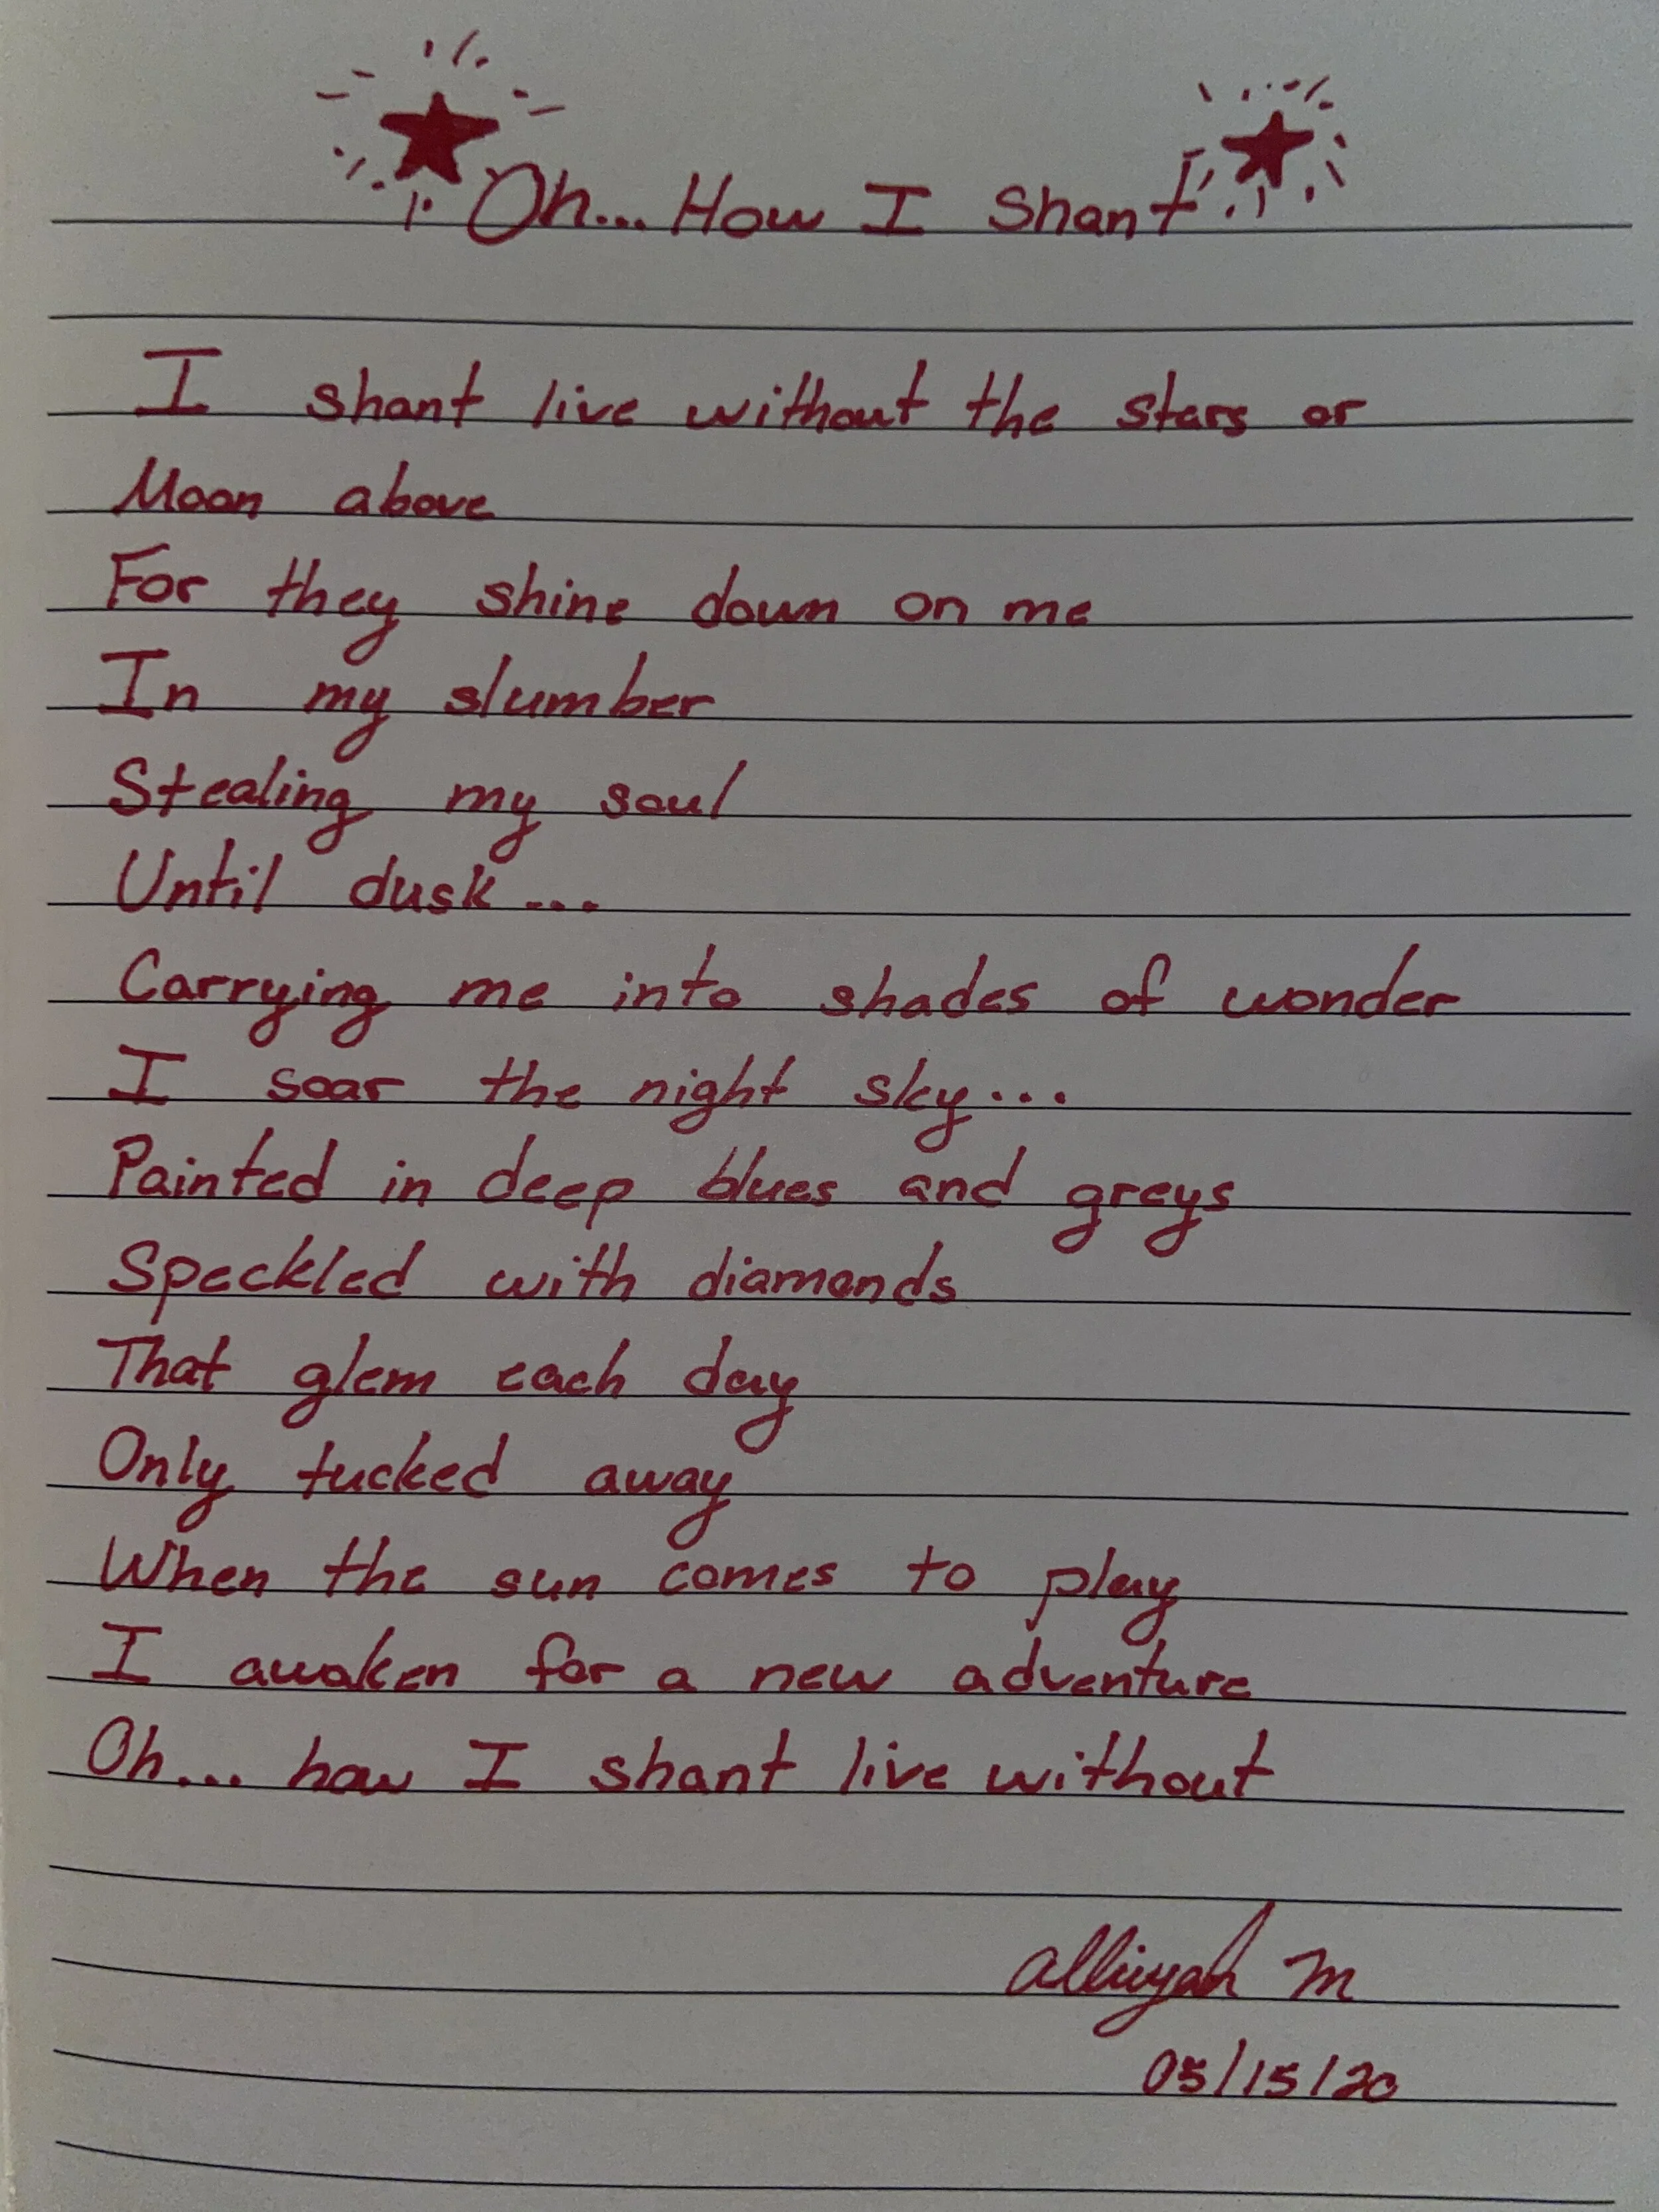 Oh... How I Shant
I shant live without the stars or
Moon above
For they shine down on me
In my slumber
Stealing my soul
Until dusk...
Carrying me into shades of wonder
I soar the night sky...
Painted in deep blues and greys
Speckled with diamonds
That glem each day
Only tucked away
When the sun comes to play
I awaken for a new adventure
Oh... how I shant live without
M
05/15/20